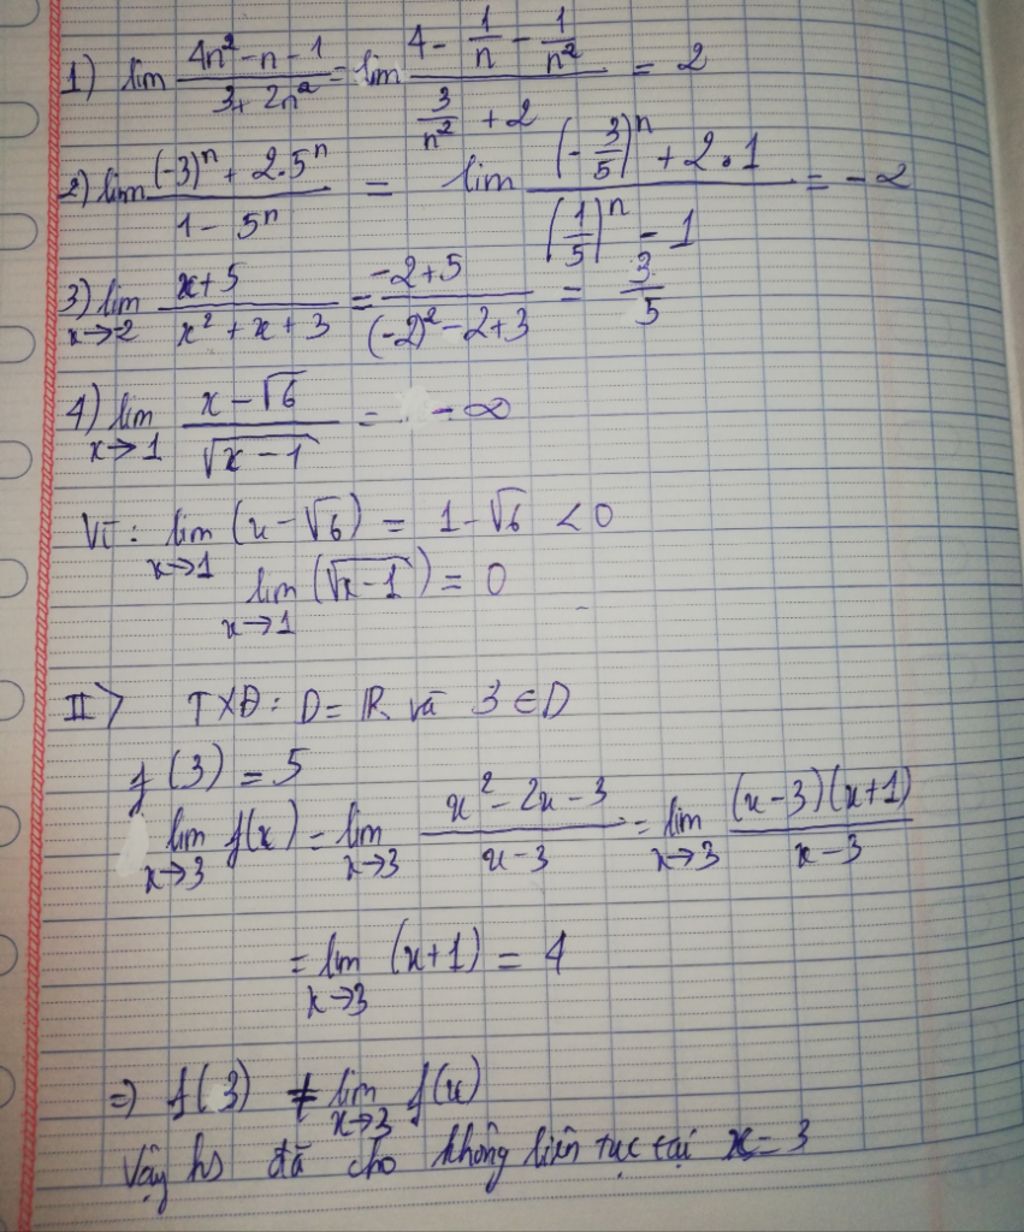 1) lim (4n² - n - 1)/(3 + 2n²) = lim (4 - 1/n - 1/n²)/(3/n² + 2) = 2
2) lim ((-3)ⁿ + 2.5ⁿ)/(1 - 5ⁿ) = lim ((-3/5)ⁿ + 2.1)/((1/5)ⁿ - 1) = -2
3) lim x→-2 (x + 5)/(x² + x + 3) = (-2 + 5)/((-2)² - 2 + 3) = 3/5
4) lim x→1 (x - √6)/(√x - 1) = -∞
Vì: lim x→1 (x - √6) = 1 - √6 < 0
lim x→1 (√x - 1) = 0
II> TXĐ: D = R và 3 ∈ D
f(3) = 5
lim x→3 f(x) = lim x→3 (x² - 2x - 3)/(x - 3) = lim x→3 (x - 3)(x + 1)/(x - 3)
= lim x→3 (x + 1) = 4
⇒ f(3) ≠ lim x→3 f(x)
Vậy hs đã cho không liên tục tại x = 3